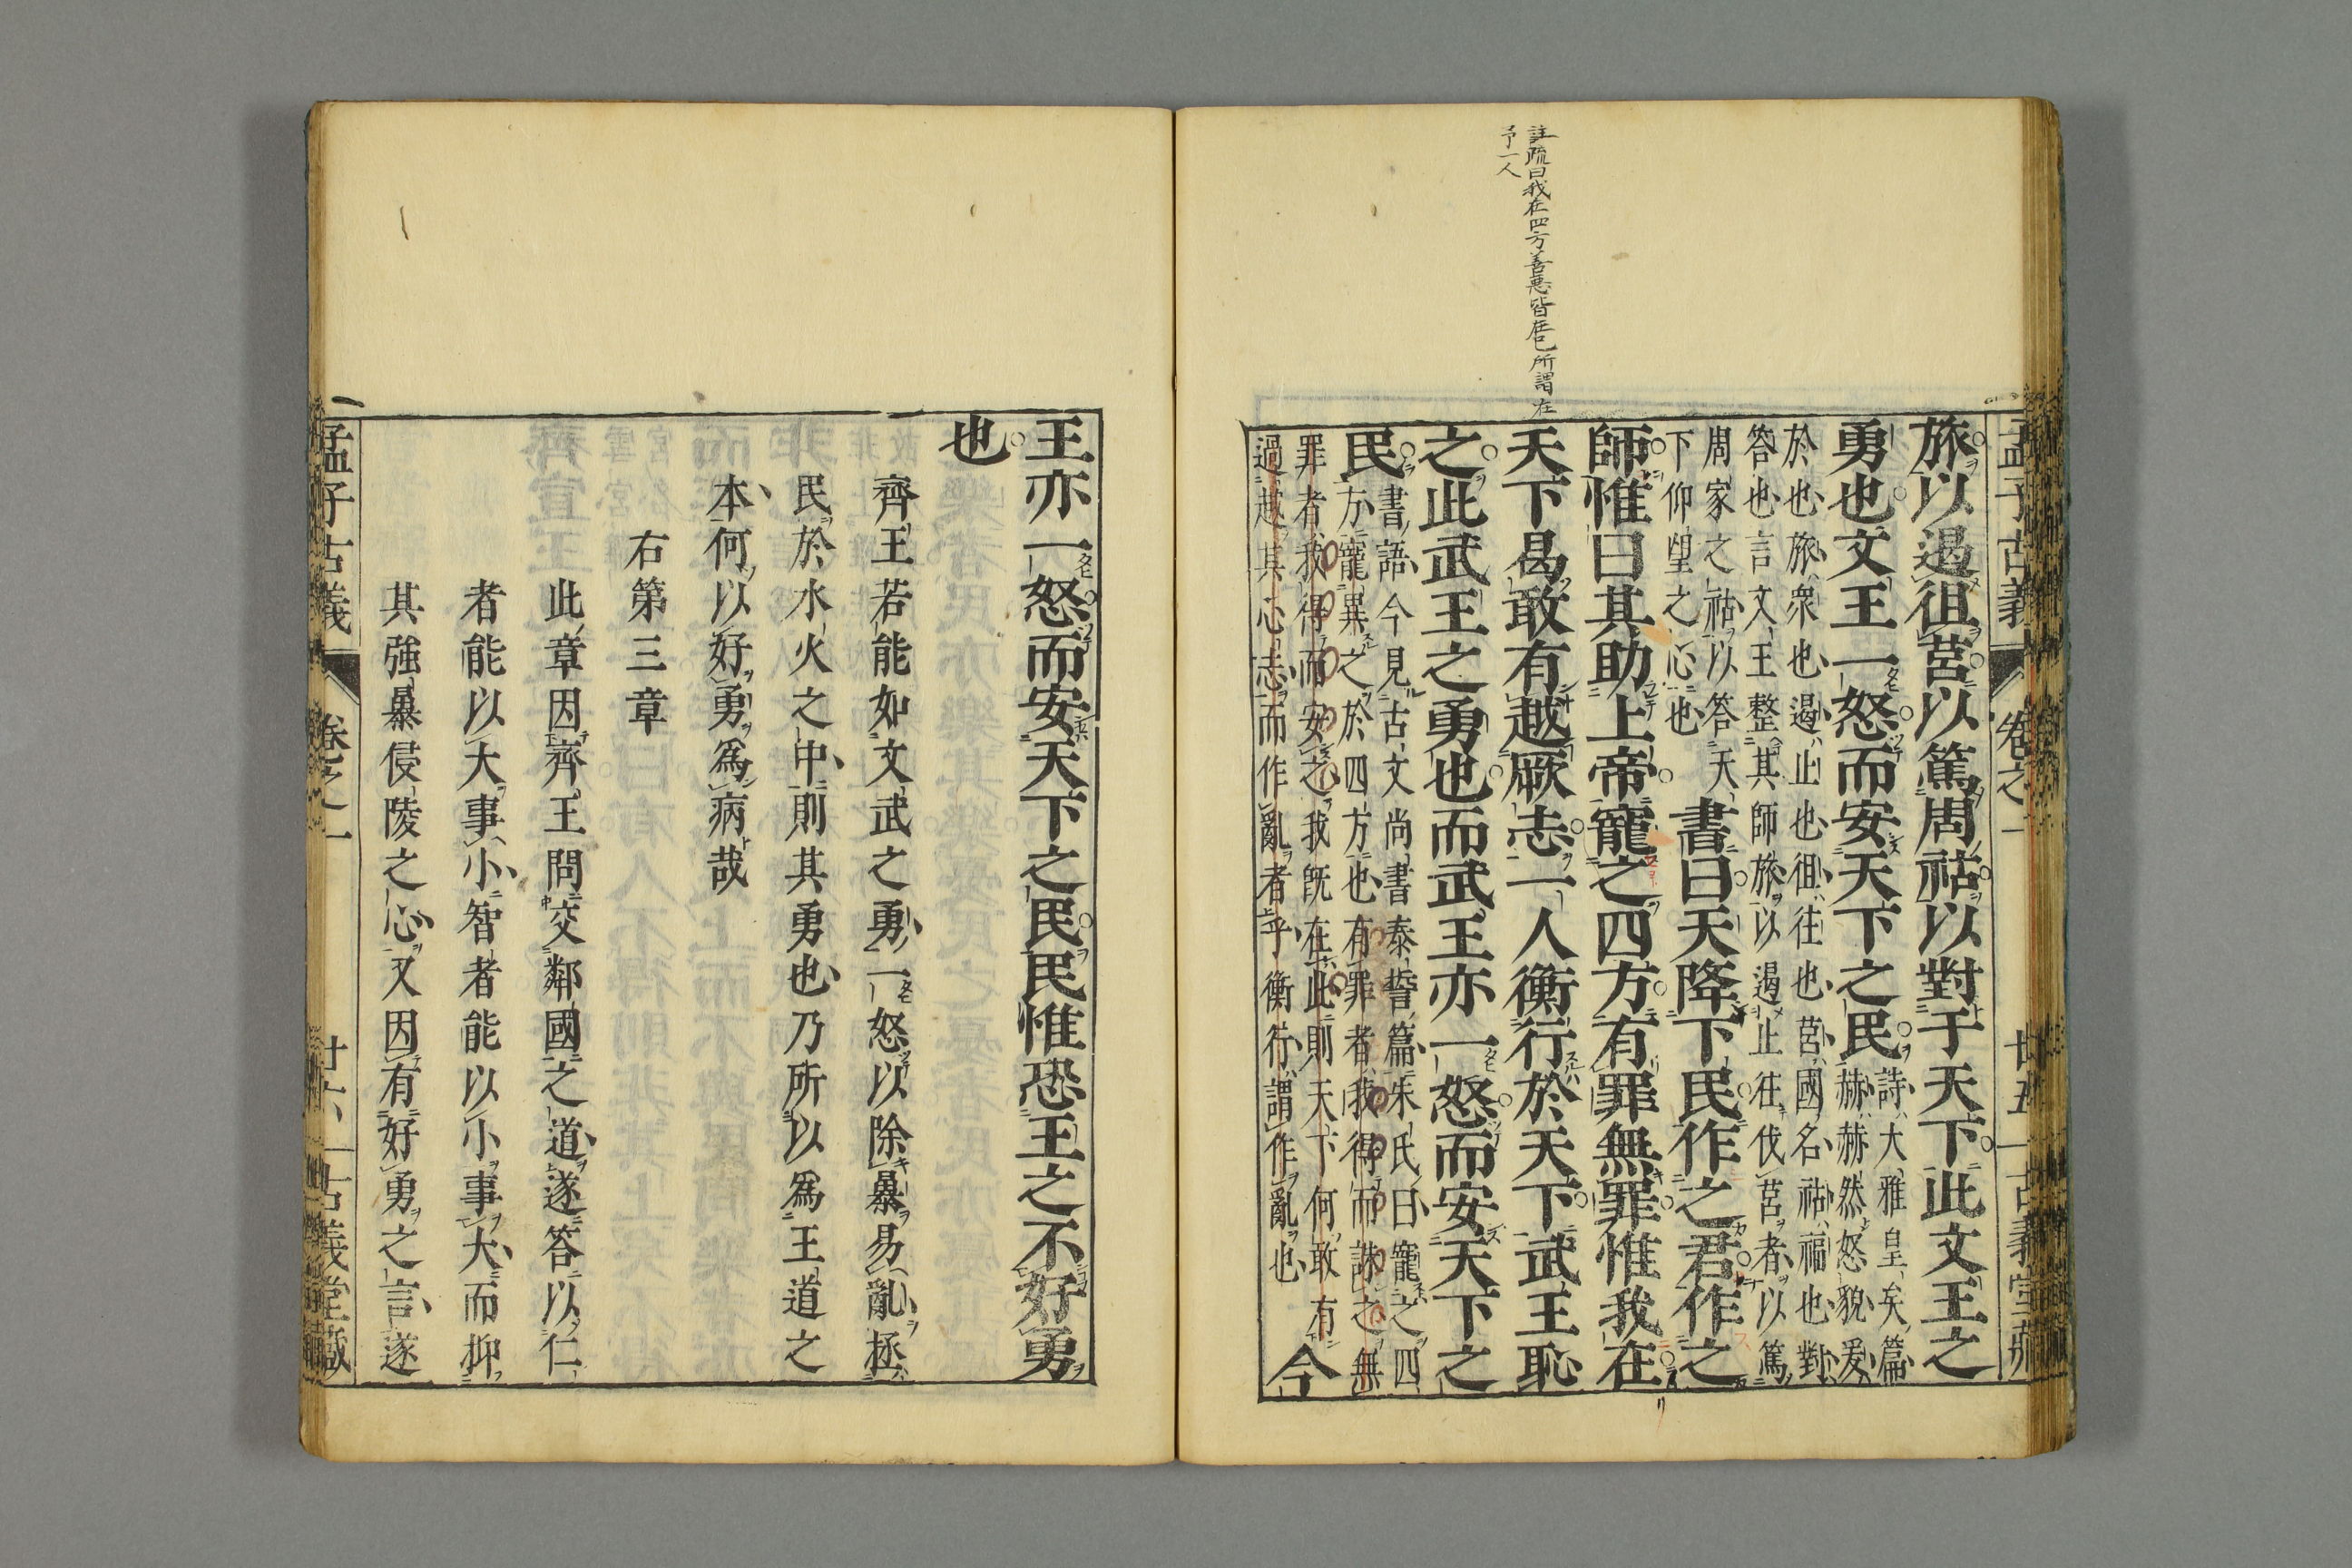 註疏曰我在四方善悪皆在己所謂在
予一人
孟子古義 卷之一 廿五 古義堂藏
旅以遏徂莒以篤周祜以對于天下此文王之
勇也文王一怒而安天下之民
詩大雅皇矣篇
赫赫然怒貌爰
於也旅衆也遏止也徂往也莒國名祜福也對
答也言文王整其師旅以遏止往伐莒者以篤
周家之祜以答天
下仰望之心也
書曰天降下民作之君作之
師惟曰其助上帝寵之四方有罪無罪惟我在
天下曷敢有越厥志一人衡行於天下武王恥
之此武王之勇也而武王亦一怒而安天下之
民
書語今見古文尚書泰誓篇朱氏曰寵之四
方寵異之於四方也有罪者我得而誅之無
罪者我得而安之我既在此則天下何敢有
過越其心志而作亂者乎衡行謂作亂也
今
王亦一怒而安天下之民民惟恐王之不好勇
也
齊王若能如文武之勇一怒以除暴易亂拯
民於水火之中則其勇也乃所以爲王道之
本何以好勇爲病哉
右第三章
此章因齊王問交鄰國之道遂答以仁
者能以大事小智者能以小事大而抑
其強暴侵陵之心又因有好勇之言遂
孟子古義 卷之一 廿六 古義堂藏